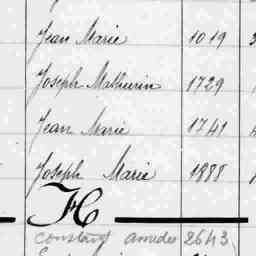 Jean Marie 1019
Joseph Mathurin 1729
Jean Marie 1741
Joseph Marie 1888
H
constant amedee 2643